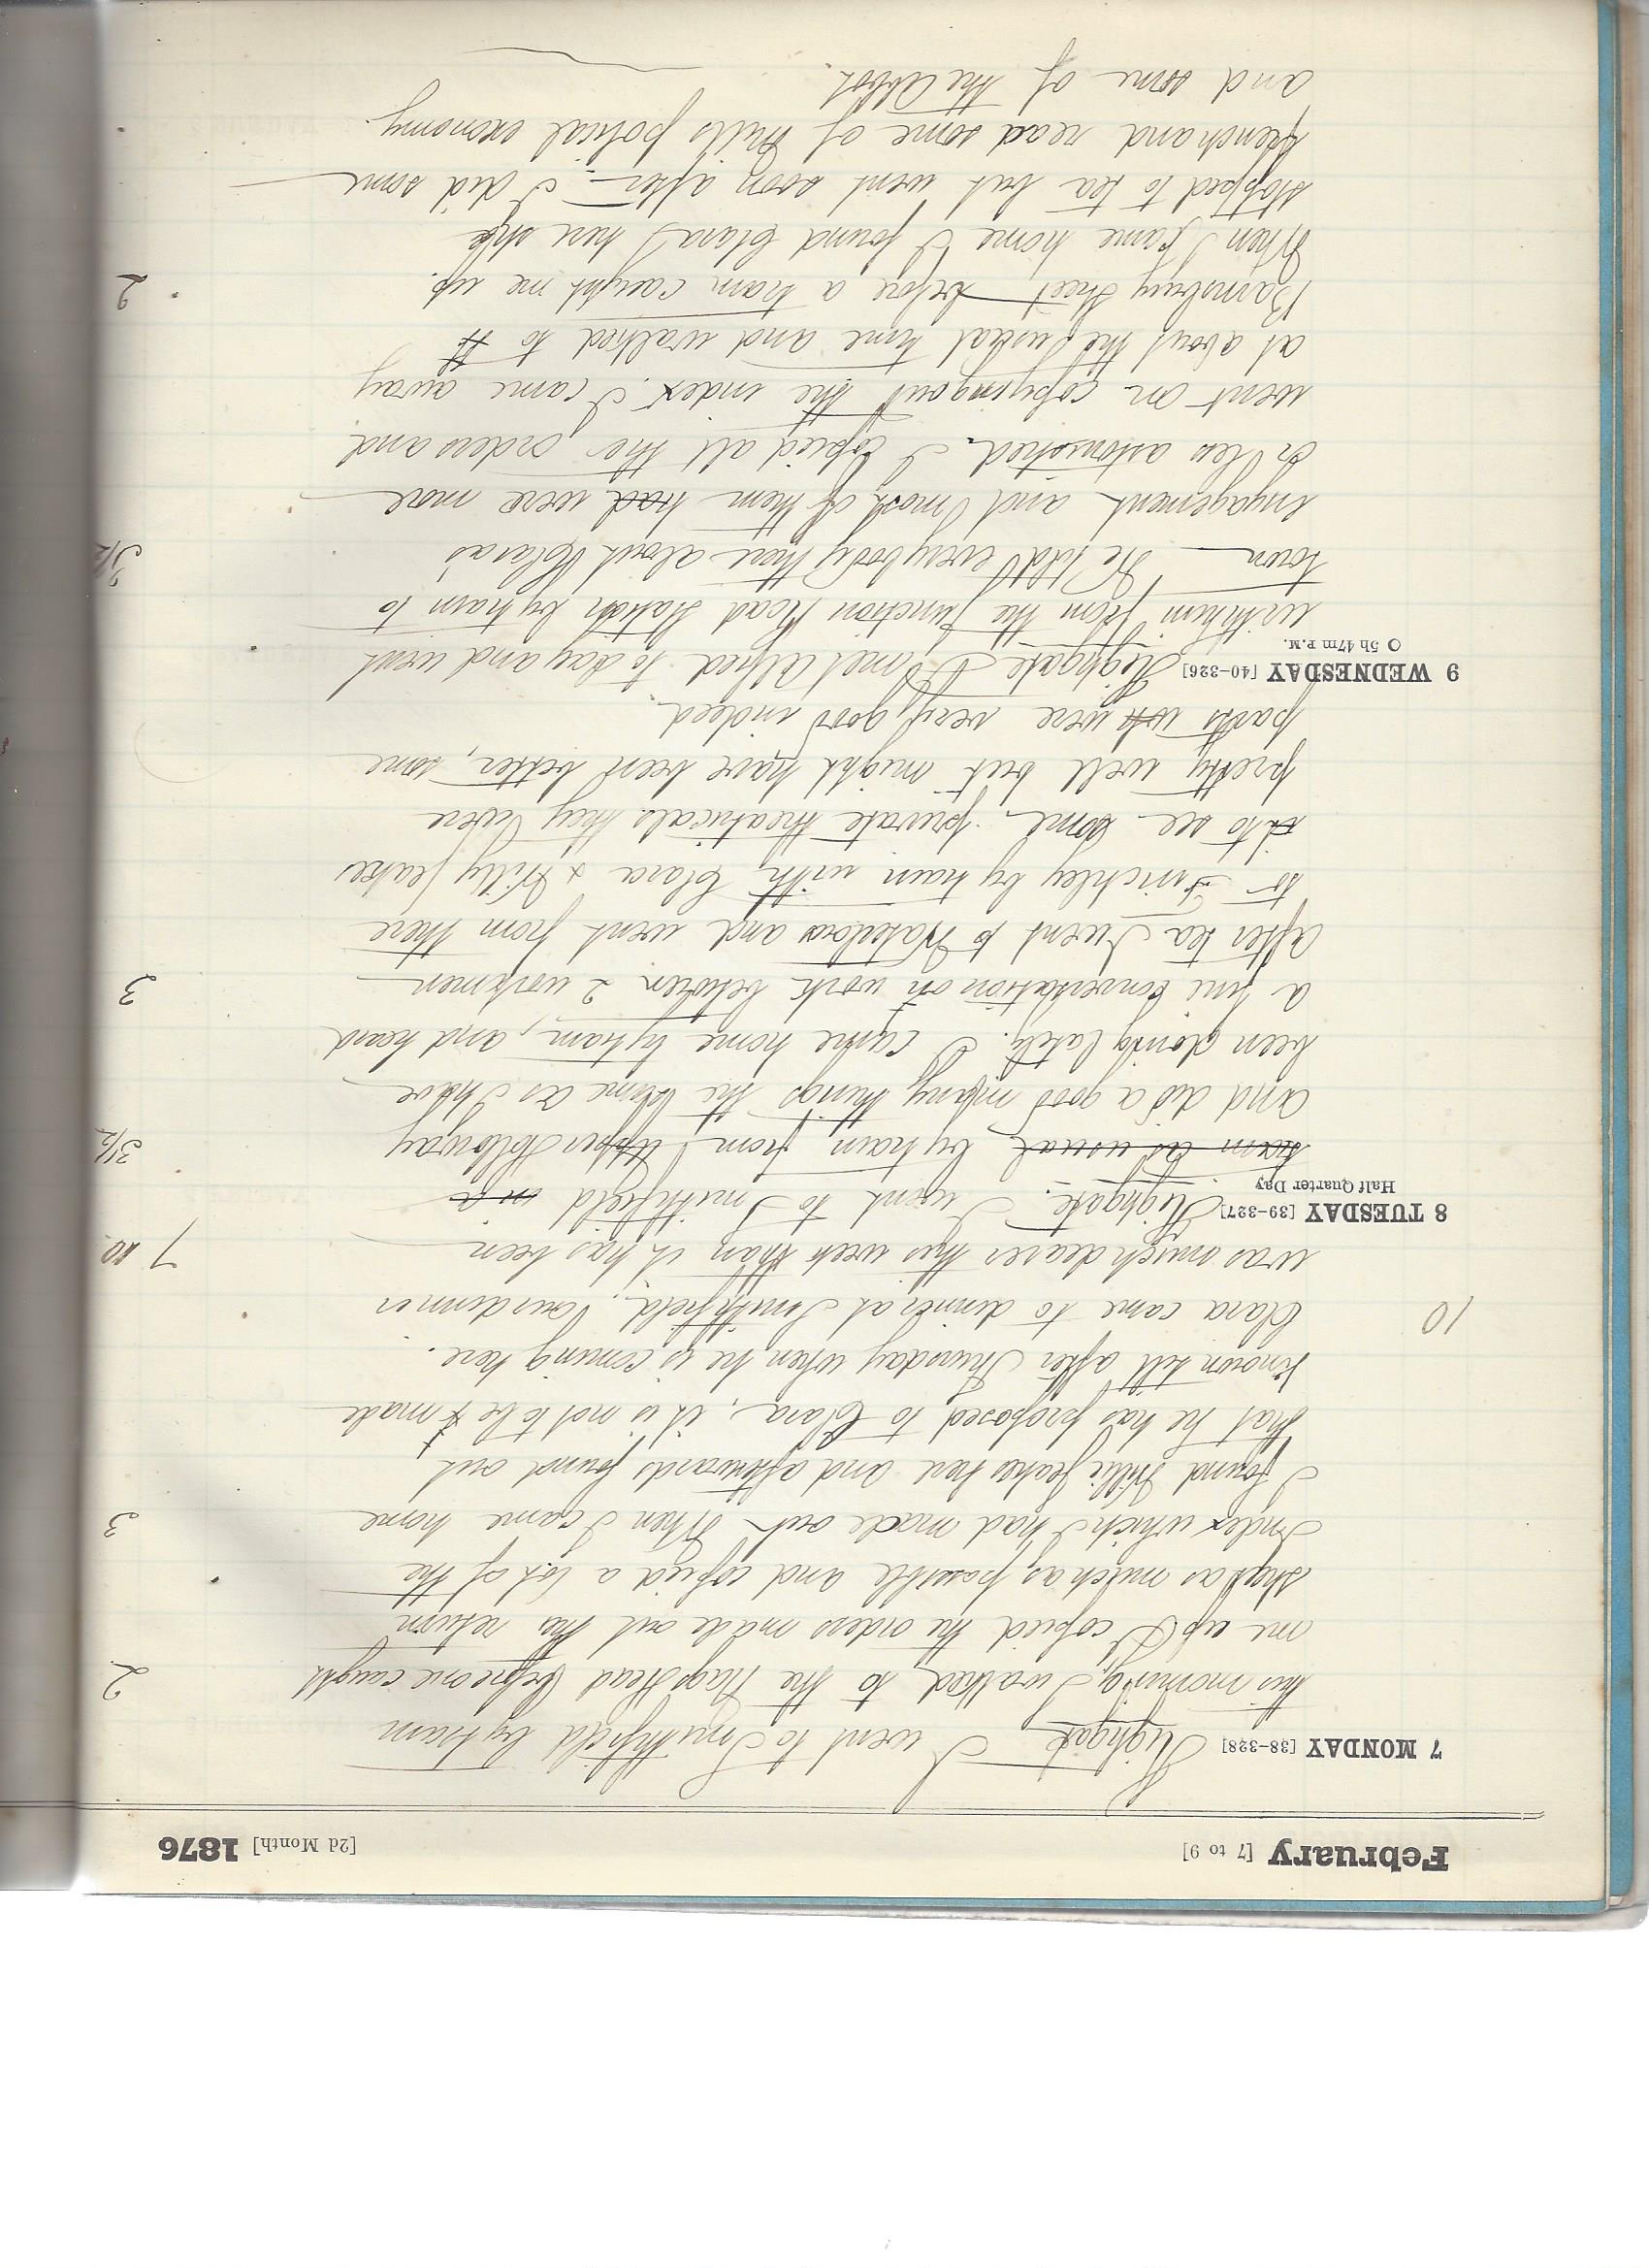 February [7 to 9] [2d Month] 1876
7 MONDAY [38-328] Highgate I went to Smithfield by tram
this morning, I walked to the Nags Head before one caught 2
me up I copied the orders made out the return
sheet as much as possible and copied a lot of the
Index which I had made out When I came home 3
I found Willie Jeakes here and afterwards found out
that he has proposed to Clara, it is not to be made
known till after Thursday when he is coming here.
10 Clara came to dinner at Smithfield, our dinner
was much dearer this week than it has been 7 10
8 TUESDAY [39-327] Highgate. I went to Smithfield in a
Half Quarter Day
tram as usual by train from Upper Holloway 3½
and did a good many things the same as I have
been doing lately. I came home by tram, and heard
a fine conversation on work between 2 workmen 3
After tea I went to Waterlow and went from there
to Finchley by train with Clara & Willy Jeakes
to see some private theatricals they were
pretty well but might have been better, some
parts were very good indeed.
9 WEDNESDAY [40-326] Highgate I met Alfred to day and went
5h 47m P.M.
with him from the Junction Road Station by train to
town He told everybody there about Clara's 3½
engagement and most of them had were more
or less astonished. I copied all the orders and
went on copying out the index. I came away
at about the usual time and walked to
Barnsbury Street before a tram caught me up. 2
When I came home I found Clara here she
stopped to tea but went soon after. I did some
french and read some of Mills political economy.
and some of the Abbot.